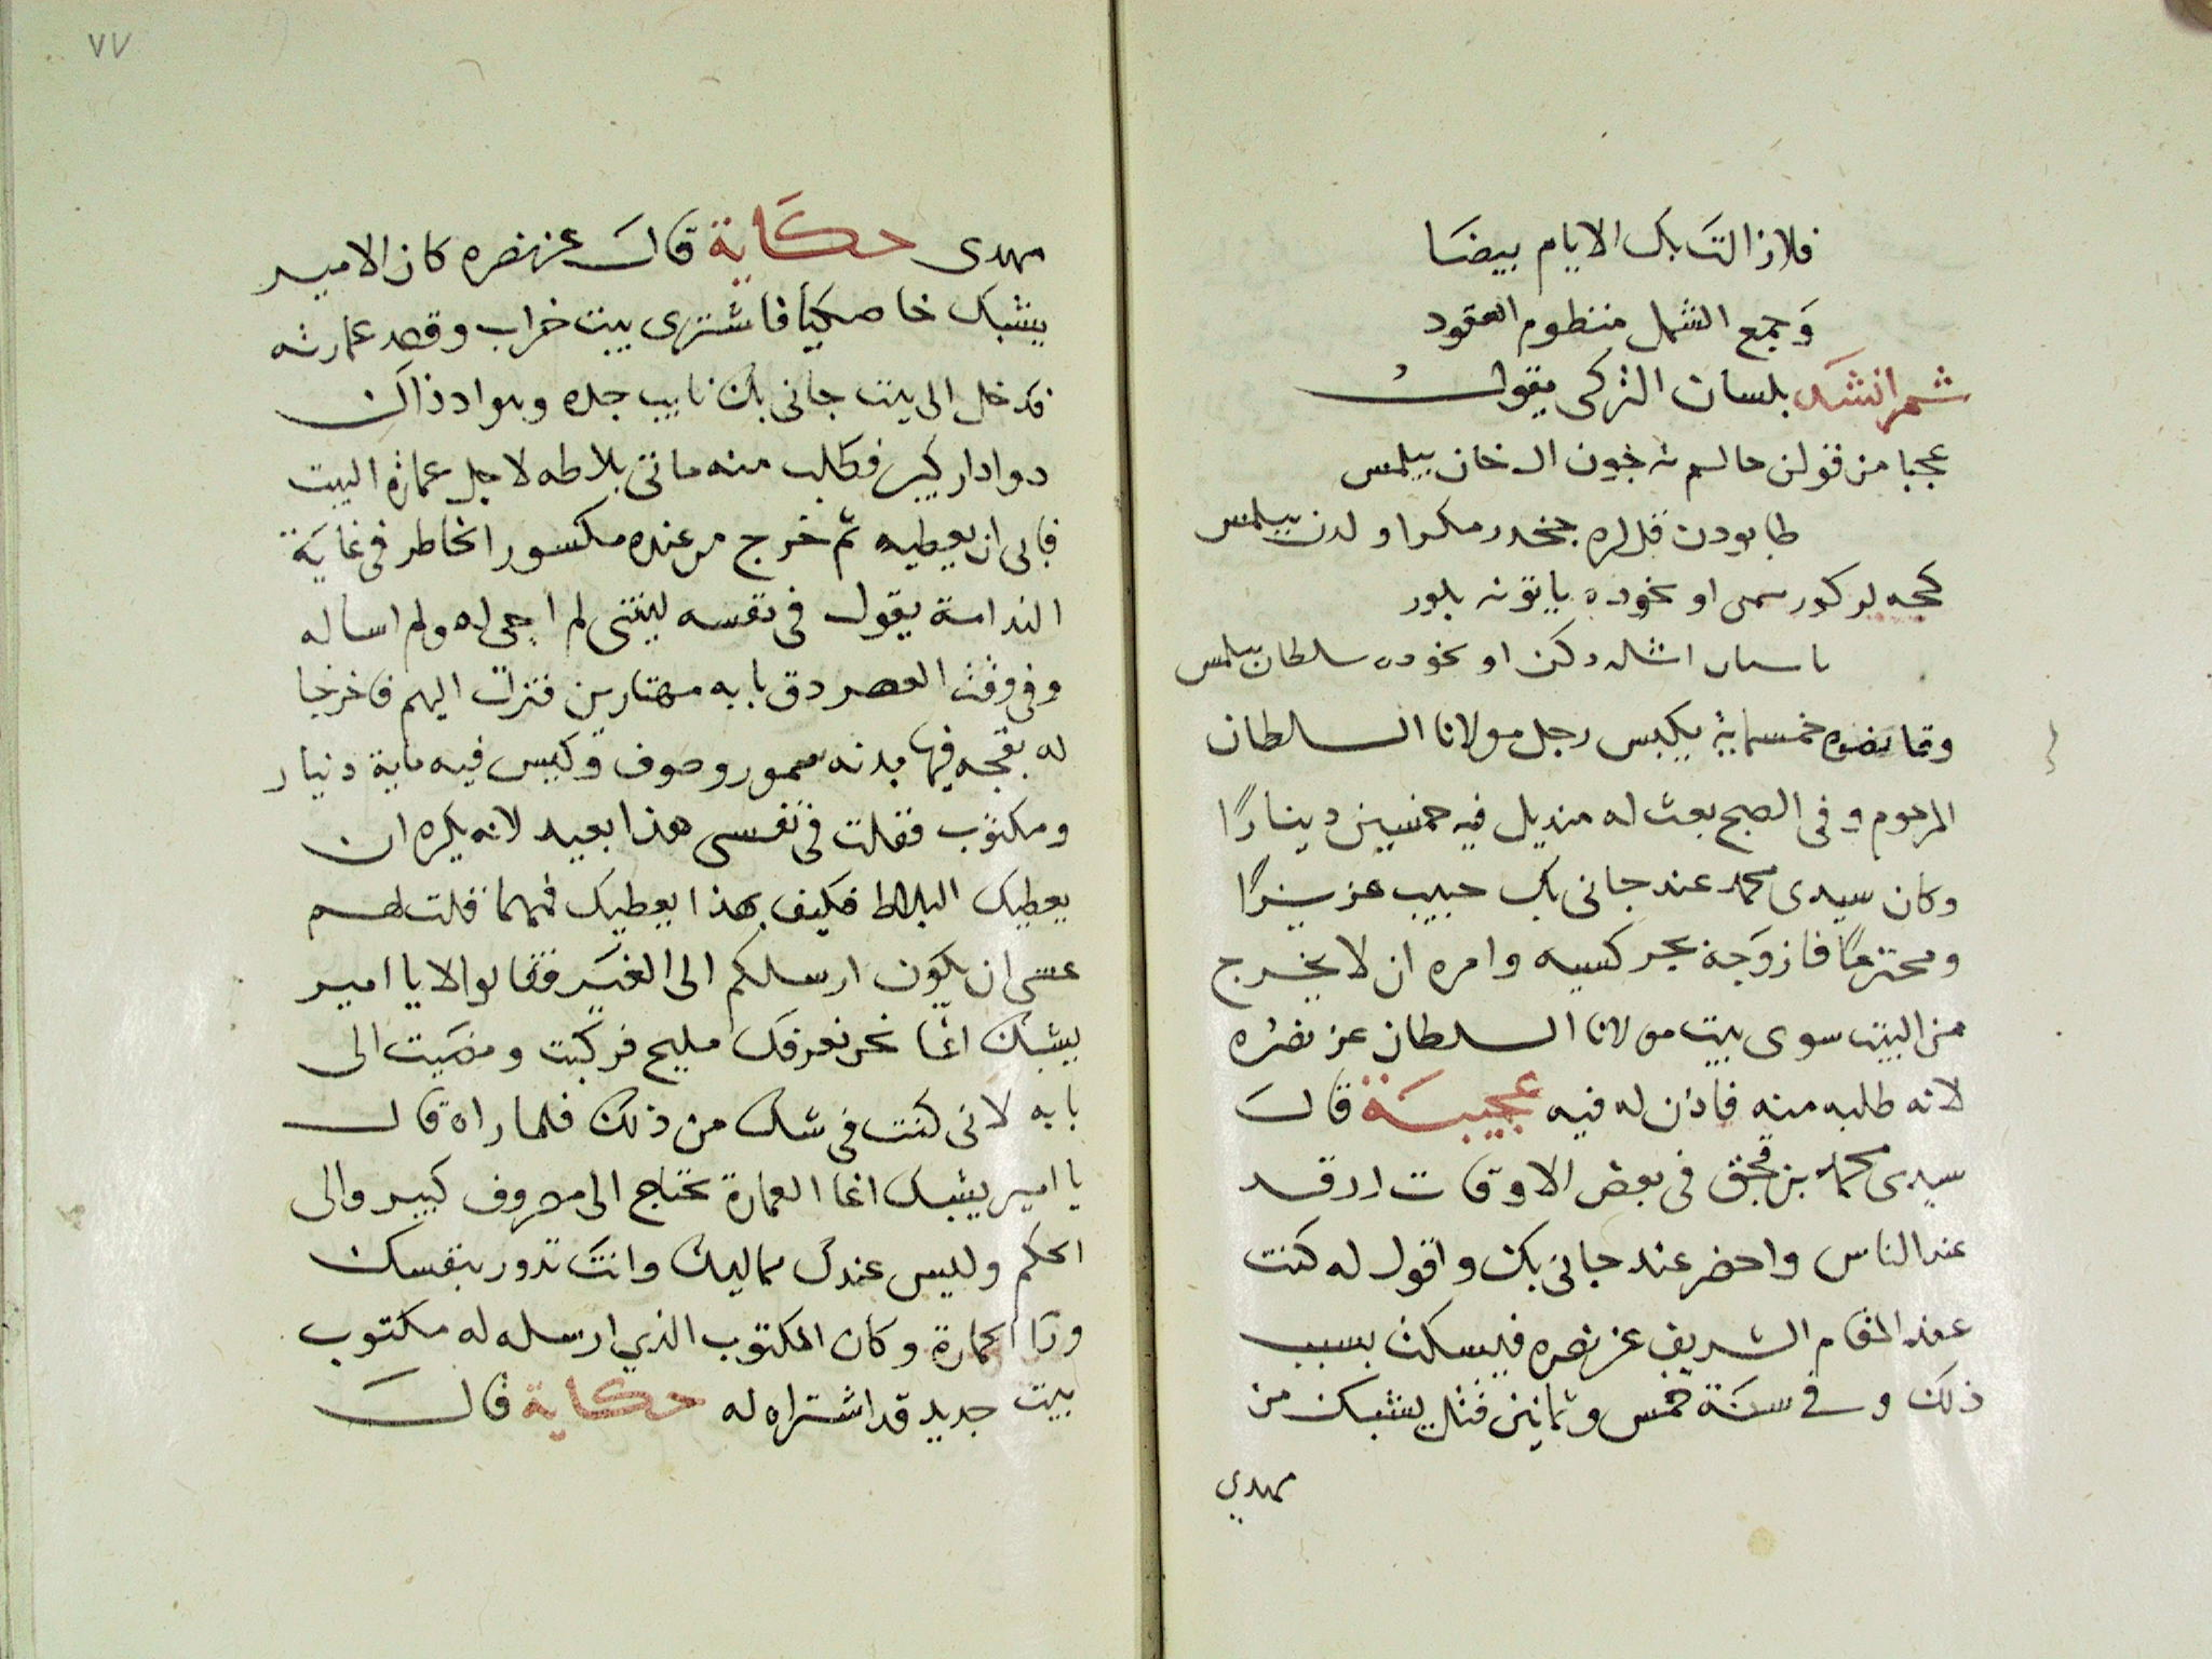 فلا زالت بك الايام بيضا
وجمع الشمل منظوم العقود
ثم انشد بلسان التركى يقول
عجبا من قولن حالم نه خون ال خان بيلمس
طابودن قللره جخدر مكر اولدن بيلمس
كجه لر كورسمى او يخوده ياتونه بلور
اشله دكن او يخوده سلطان بيلمس
وقانصوه خمسماية يكبس رجل مولانا السلطان
المرحوم وفى الصبح بعث له منديل فيه خمسين دينارًا
وكان سيدى محمد عند جانى بك حبيب عزيزًا
ومحترمًا فازوجه بجركسيه وامره ان لا يخرج
من البيت سوى بيت مولانا السلطان عز نصره
لانه طلبه منه فاذن له فيه عجيبة قال
سيدى محمد بن قجق فى بعض الاوقات ارقد
عند الناس واحضر عند جانى بك واقول له كنت
عند المقام الشريف عز نصره فيسكت بسبب
ذلك وفى سنة خمس وثمانين قتل يشبك من
مهدي
٧٧
مهدى حكاية قال عز نصره كان الامير
يشبك خاصكيا فاشترى بيت خراب وقصد عمارته
فدخل الى بيت جانى بك نايب جده وهو اذ ذاك
دوادار كبير فطلب منه ماتى بلاطه لاجل عمارة البيت
فابى ان يعطيه ثم خرج من عنده مكسور الخاطر فى غاية
الندامة يقول فى نفسه ليتنى لم اجى له ولم اساله
وفى وقت العصر دق بابه مهتارين فنزلت اليهم فاخرجا
له بقجه فيها بدنه سمور وصوف وكيس فيه ماية دينار
ومكتوب فقلت فى نفسى هذا بعيد لانه يكره ان
يعطيك البلاط فكيف بهذا يعطيك فمهما قلت لهم
عسى ان يكون ارسلكم الى الغير فقالوا لا يا امير
يشبك اغا نحن نعرفك مليح فركبت ومضيت الى
بابه لانى كنت فى شك من ذلك فلما راه قال
يا امير يشبك اغا العمارة تحتاج الى مصروف كبير والى
الحكم وليس عندك مماليك وانت تدور بنفسك
ورا الحمارة وكان المكتوب الذي ارسله له مكتوب
بيت جديد قد اشتراه له حكاية قال